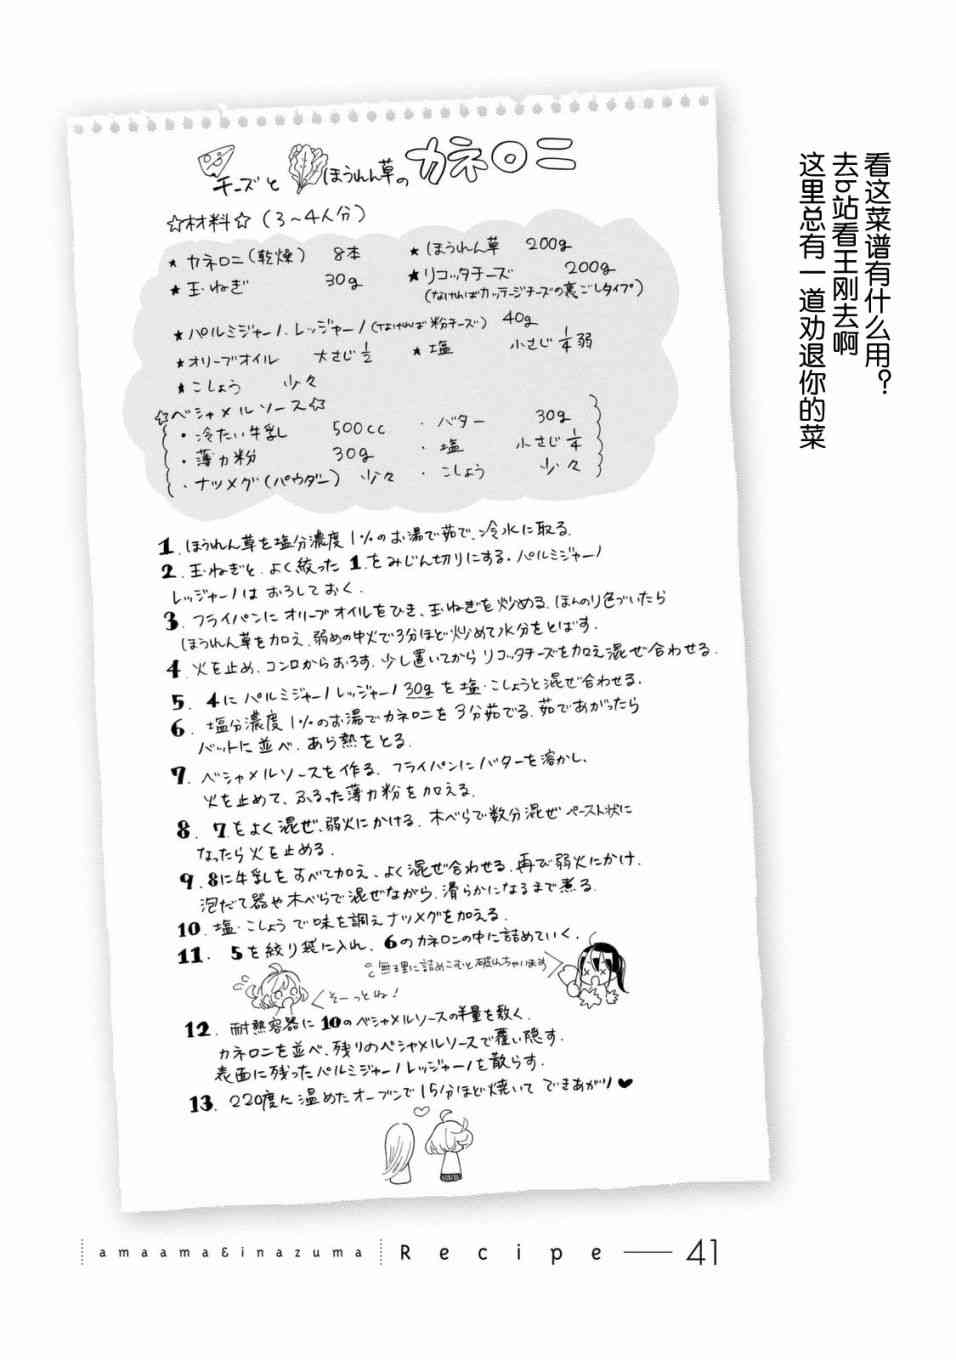 チーズとほうれん草のカネロニ
☆材料☆(3～4人分)
★カネロニ(乾燥) 8本
★ほうれん草 200g
★玉ねぎ 30g
★リコッタチーズ 200g
(なければカッテージチーズの裏ごしタイプ)
★パルミジャーノ・レッジャーノ(なければ粉チーズ) 40g
★オリーブオイル 大さじ1/2
★塩 小さじ1/4弱
★こしょう 少々
☆ベシャメルソース☆
・冷たい牛乳 500cc
・バター 30g
・薄力粉 30g
・塩 小さじ1/4
・ナツメグ(パウダー) 少々
・こしょう 少々
1.ほうれん草を塩分濃度1%のお湯で茹で、冷水に取る.
2.玉ねぎと、よく絞った1.をみじん切りにする。パルミジャーノ
レッジャーノはおろしておく.
3.フライパンにオリーブオイルをひき、玉ねぎを炒める.ほんのり色づいたら
ほうれん草を加え、弱めの中火で3分ほど炒めて水分をとばす.
4.火を止め、コンロからおろす.少し置いてからリコッタチーズを加え混ぜ合わせる.
5.4にパルミジャーノレッジャーノ30gを塩・こしょうと混ぜ合わせる.
6.塩分濃度1%のお湯でカネロニを3分茹でる.茹であがったら
バットに並べ、あら熱をとる.
7.ベシャメルソースを作る.フライパンにバターを溶かし、
火を止めて、ふるった薄力粉を加える.
8.7をよく混ぜ、弱火にかける.木べらで数分混ぜペースト状に
なったら火を止める.
9.8に牛乳をすべて加え、よく混ぜ合わせる.再び弱火にかけ、
泡だて器や木べらで混ぜながら、滑らかになるまで煮る.
10.塩・こしょうで味を調えナツメグを加える.
11.5を絞り袋に入れ、6のカネロニの中に詰めていく.
無理に詰めこむと破れちゃいます
そーっとね!
12.耐熱容器に10のベシャメルソースの半量を敷く.
カネロニを並べ、残りのベシャメルソースで覆い隠す.
表面に残ったパルミジャーノレッジャーノを散らす.
13.220度に温めたオーブンで15分ほど焼いてできあがり♥
看这菜谱有什么用?
去b站看王刚去啊
这里总有一道劝退你的菜
amaama&inazuma Recipe 41